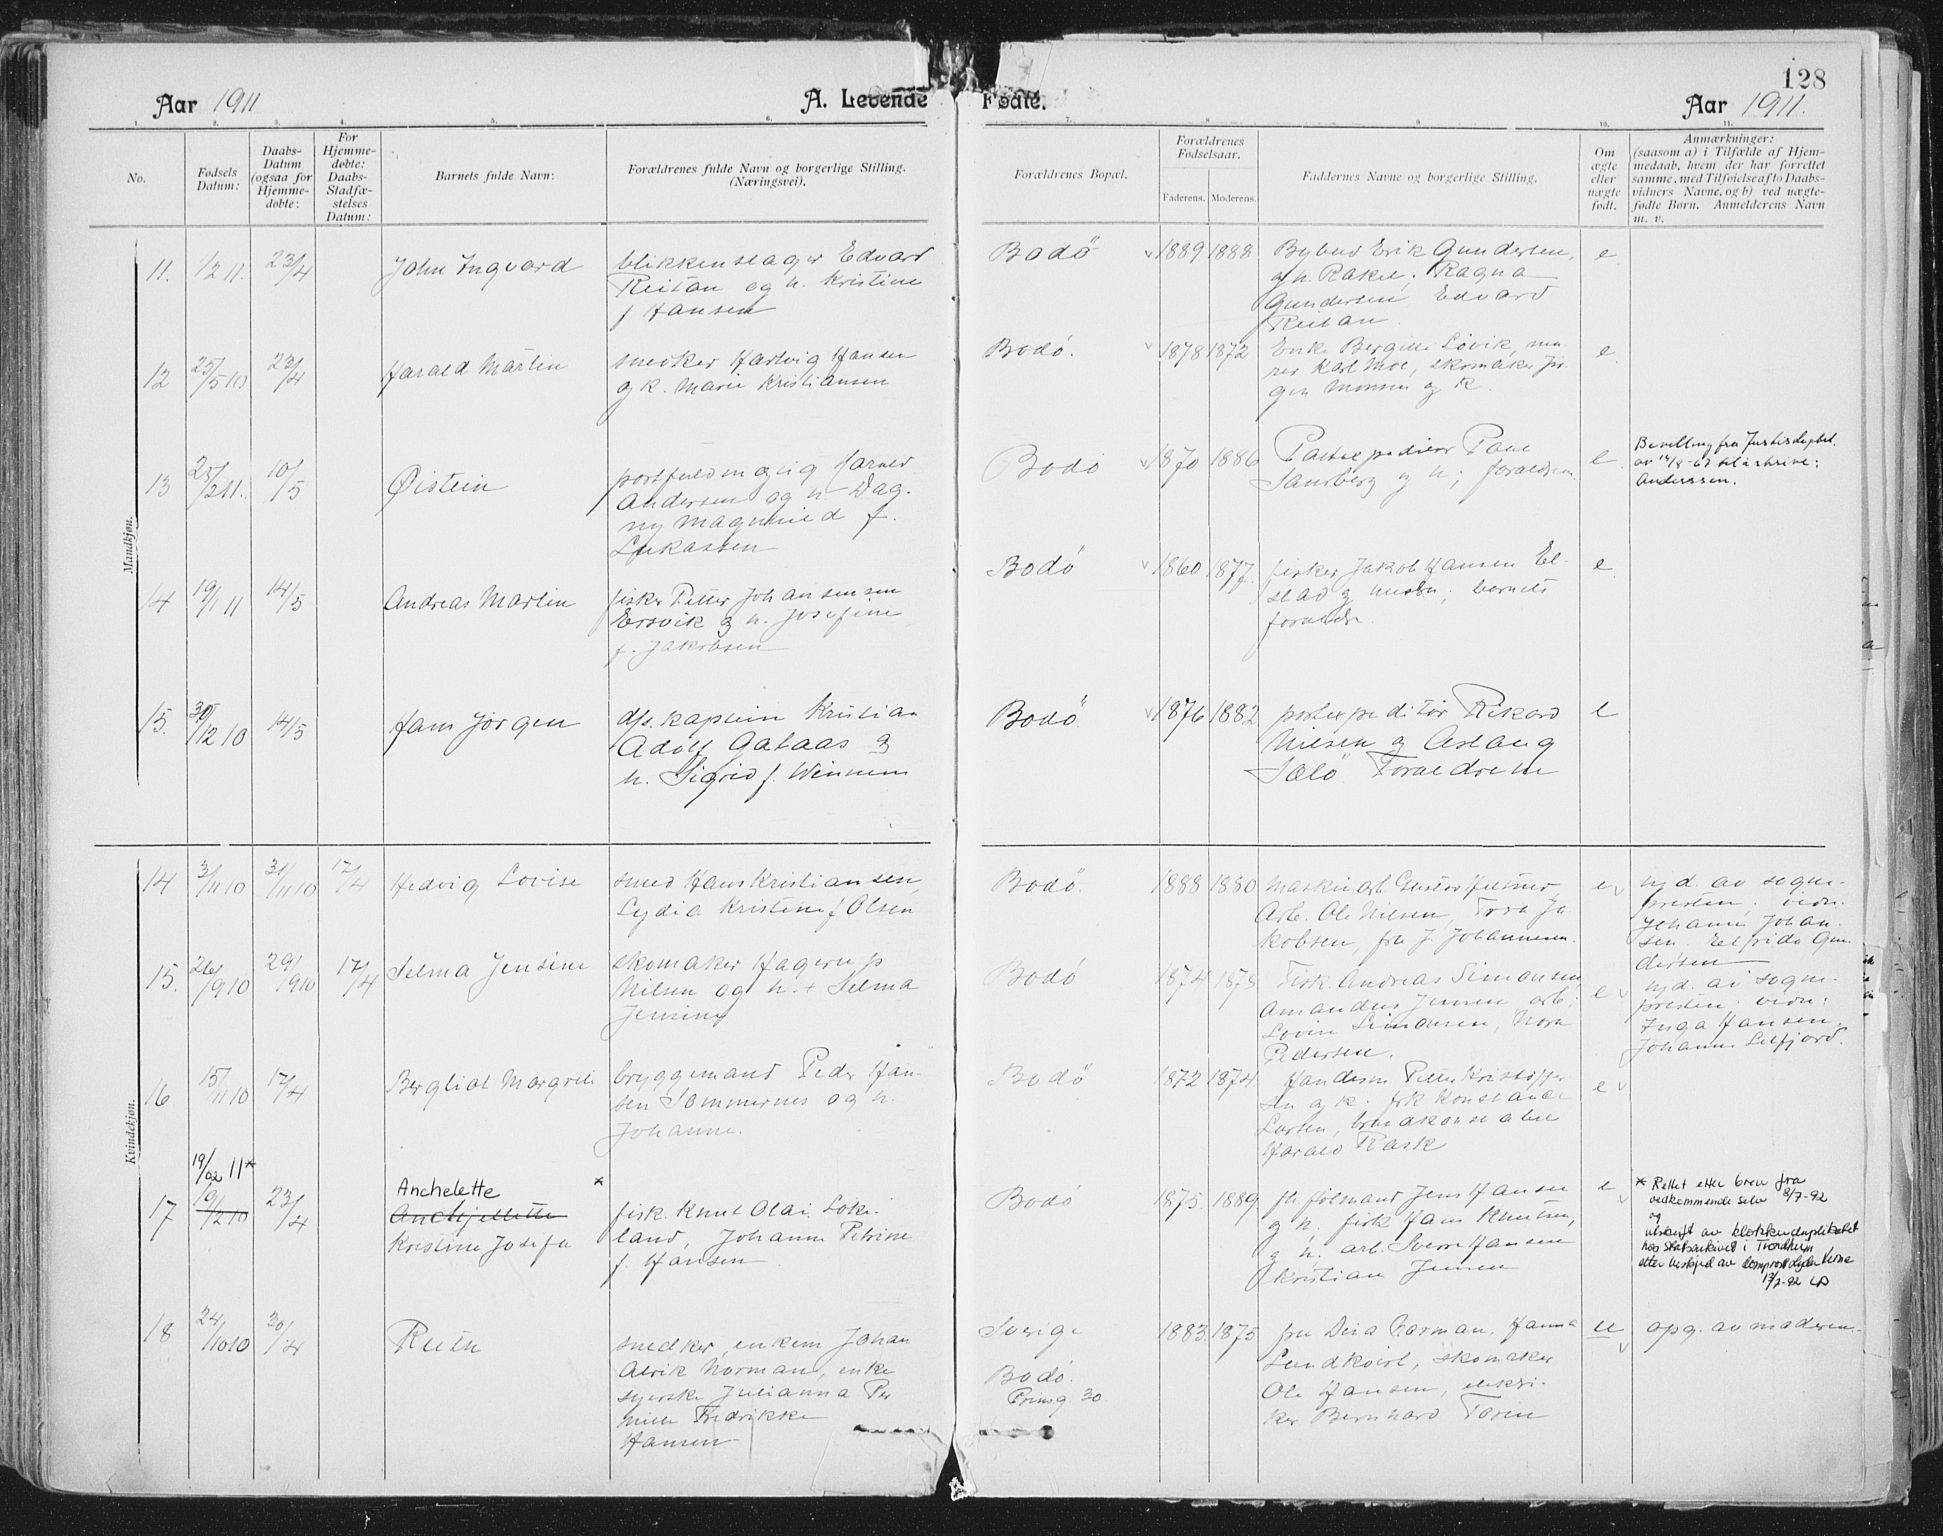 128
Aar 1911
A. Levende Fødte.
Aar 1911.
1. 2. 3. 4. 5. 6. 7. 8. 9. 10. 11.
No.
Fødsels
Datum:
Daabs-
Datum
(ogsaa for
Hjemme-
døbte:
For
Hjemme-
døbte:
Daabs-
Stadfæ-
stelses
Datum:
Barnets fulde Navn:
Forældrenes fulde Navn og borgerlige Stilling.
(Næringsvei).
Forældrenes Bopæl.
Forældrenes
Fødselsaar.
Faderens. Moderens.
Faddernes Navne og borgerlige Stilling.
Om
ægte
eller
uægte
født.
Anmærkninger:
(saasom a) i Tilfælde af Hjem-
medaab, hvem der har forrettet
samme, med Tilføielse af to Daabs-
vidners Navne, og b) ved uægte-
fødte Børn. Anmelderens Navn
m. v.
Mandkjøn.
11. 1/2 11. 23/4 John Ingvard
blikkenslager Edvard
Reitan og h. Kristine
f Hansen
Bodö 1889 1888
Bybud Erik Gundersen,
og h. Rakel, Ragna
Gundersen Edvard
Reitan.
e
12 25/5 10 23/4 Harald Martin
snedker Hartvig Hansen
og k. Marie Kristiansen
Bodö. 1878 1872
Enke Bergitte Lövik, mu
rer Karl Moe, skomaker Jör
gen Monsen og k.
e
13 25/2 11. 10/5 Øistein
postfuldmægtig Harald
Andersen og h Dag-
ny Magnhild f.
Lukassen
Bodö 1870 1886
Postexpeditør Paul
Sandberg og h; foraldren.
e
Bevilling fra Justisdeptet.
av 14/8-67 til å skrive:
Anderssen.
14 19/1 11 14/5 Andreas Martin
fisker Petter Johan sensen
Ersvik og h. Josefine
f. Jakobsen
Bodö 1860 1877.
fisker Jakob Hansen El-
stad og hustru; barnets
foraldre.
e
15. 30/12 10 14/5 Hans Jørgen
d/s. kaptein Kristian
Adolf Gataas og
h. Sigrid f. Winnem
Bodö 1876 1882
postexpeditör Rikard
Nielsen og Aslaug
Salö Foraldrene
e
Kvindekjøn.
14 3/11 10 31/11 10 17/4 Hedvig Lovise
smed Hans Kristiansen,
Lydia Kristine f Olsen
Bodö. 1888 1880
Maskinarb Gustav
Arb. Ole Nielsen, Tora Ja
kobsen, fru J. Johannesen.
e
hjd. av sogne-
presten. vidn.
Johanna Johan-
sen. Elfrida Gun
dersen
15. 26/9 10 29/9 10 17/4 Selma Jensine
skomaker Hagerup
Nilsen og h. + Selma
Jensine
Bodö 1874 1875
Fisk. Andreas Simonsen
Amandus Jensen arb;
Lovise Simonsen, Nora
Pedersen.
e
hjd. av sogne-
presten. vidn:
Inga Hansen,
Johanne Leifjord.
16 15/11 10 17/4 Bergliot Margrete
bryggemand Peder Han-
sen Sommernes og h.
Johanne.
Bodö 1872 1874.
Handelsm Petter Kristoffer
sen og k. frk Konstance
Larsen, brandkonstabel
Harald Rask
e
19/02 11*
17 19/12 10 23/4
Anchelette *
Anchjellette
Kristine Josefa
fisk. Knut Olai Løk-
land, Johanne Petrine
f. Hansen
Bodö 1875. 1889.
Jens Hansen
og h. fisk Hans Knutsen,
og h. arb. Sverre Hansen
Kristian Jensen
e
* Rettet etter brev fra
vedkommende selv 8/7-92
og
utskrift av klokkerduplikatet
hos Statsarkivet i Trondheim
etter beskjed av domprost
13/7-92
18 24/10 10 30/4 Ruth
snedker, enkem Johan
Alrik Norman, enke
syerske Julianna Per
nille Fredrikke
Hansen
Sverige
Bodö.
Prinsg 30.
1883. 1875
fru Dina Norman, Hanna
Lundkvist, skomaker
Ole Hansen, elektri-
ker Bernhard Torin
u
opg. av moderen.